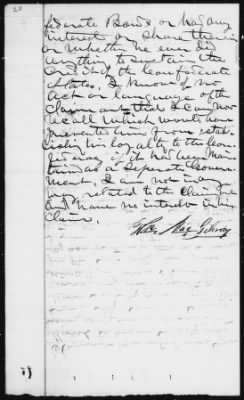 20
federate Bonds or had any
interest or share therein
or whether he ever did
anything to sustain the
credit of the Confederate
States, I know of no
act or language of the
claimant that I can now
recall which would have
prevented him from estab-
lishing his loyalty to the Con-
federacy if it had been main-
tained as a separate Govern-
ment, I am not in any
way related to the claimant
and have no interest in his
claim.